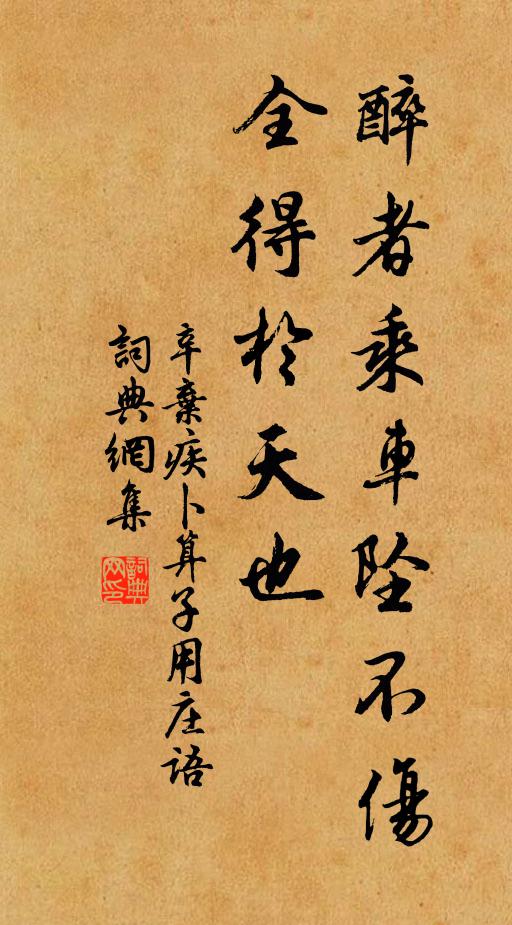 醉者乘車坠不傷
全得於天也
辛棄疾卜算子用庄語
詞典網集
詞典网印